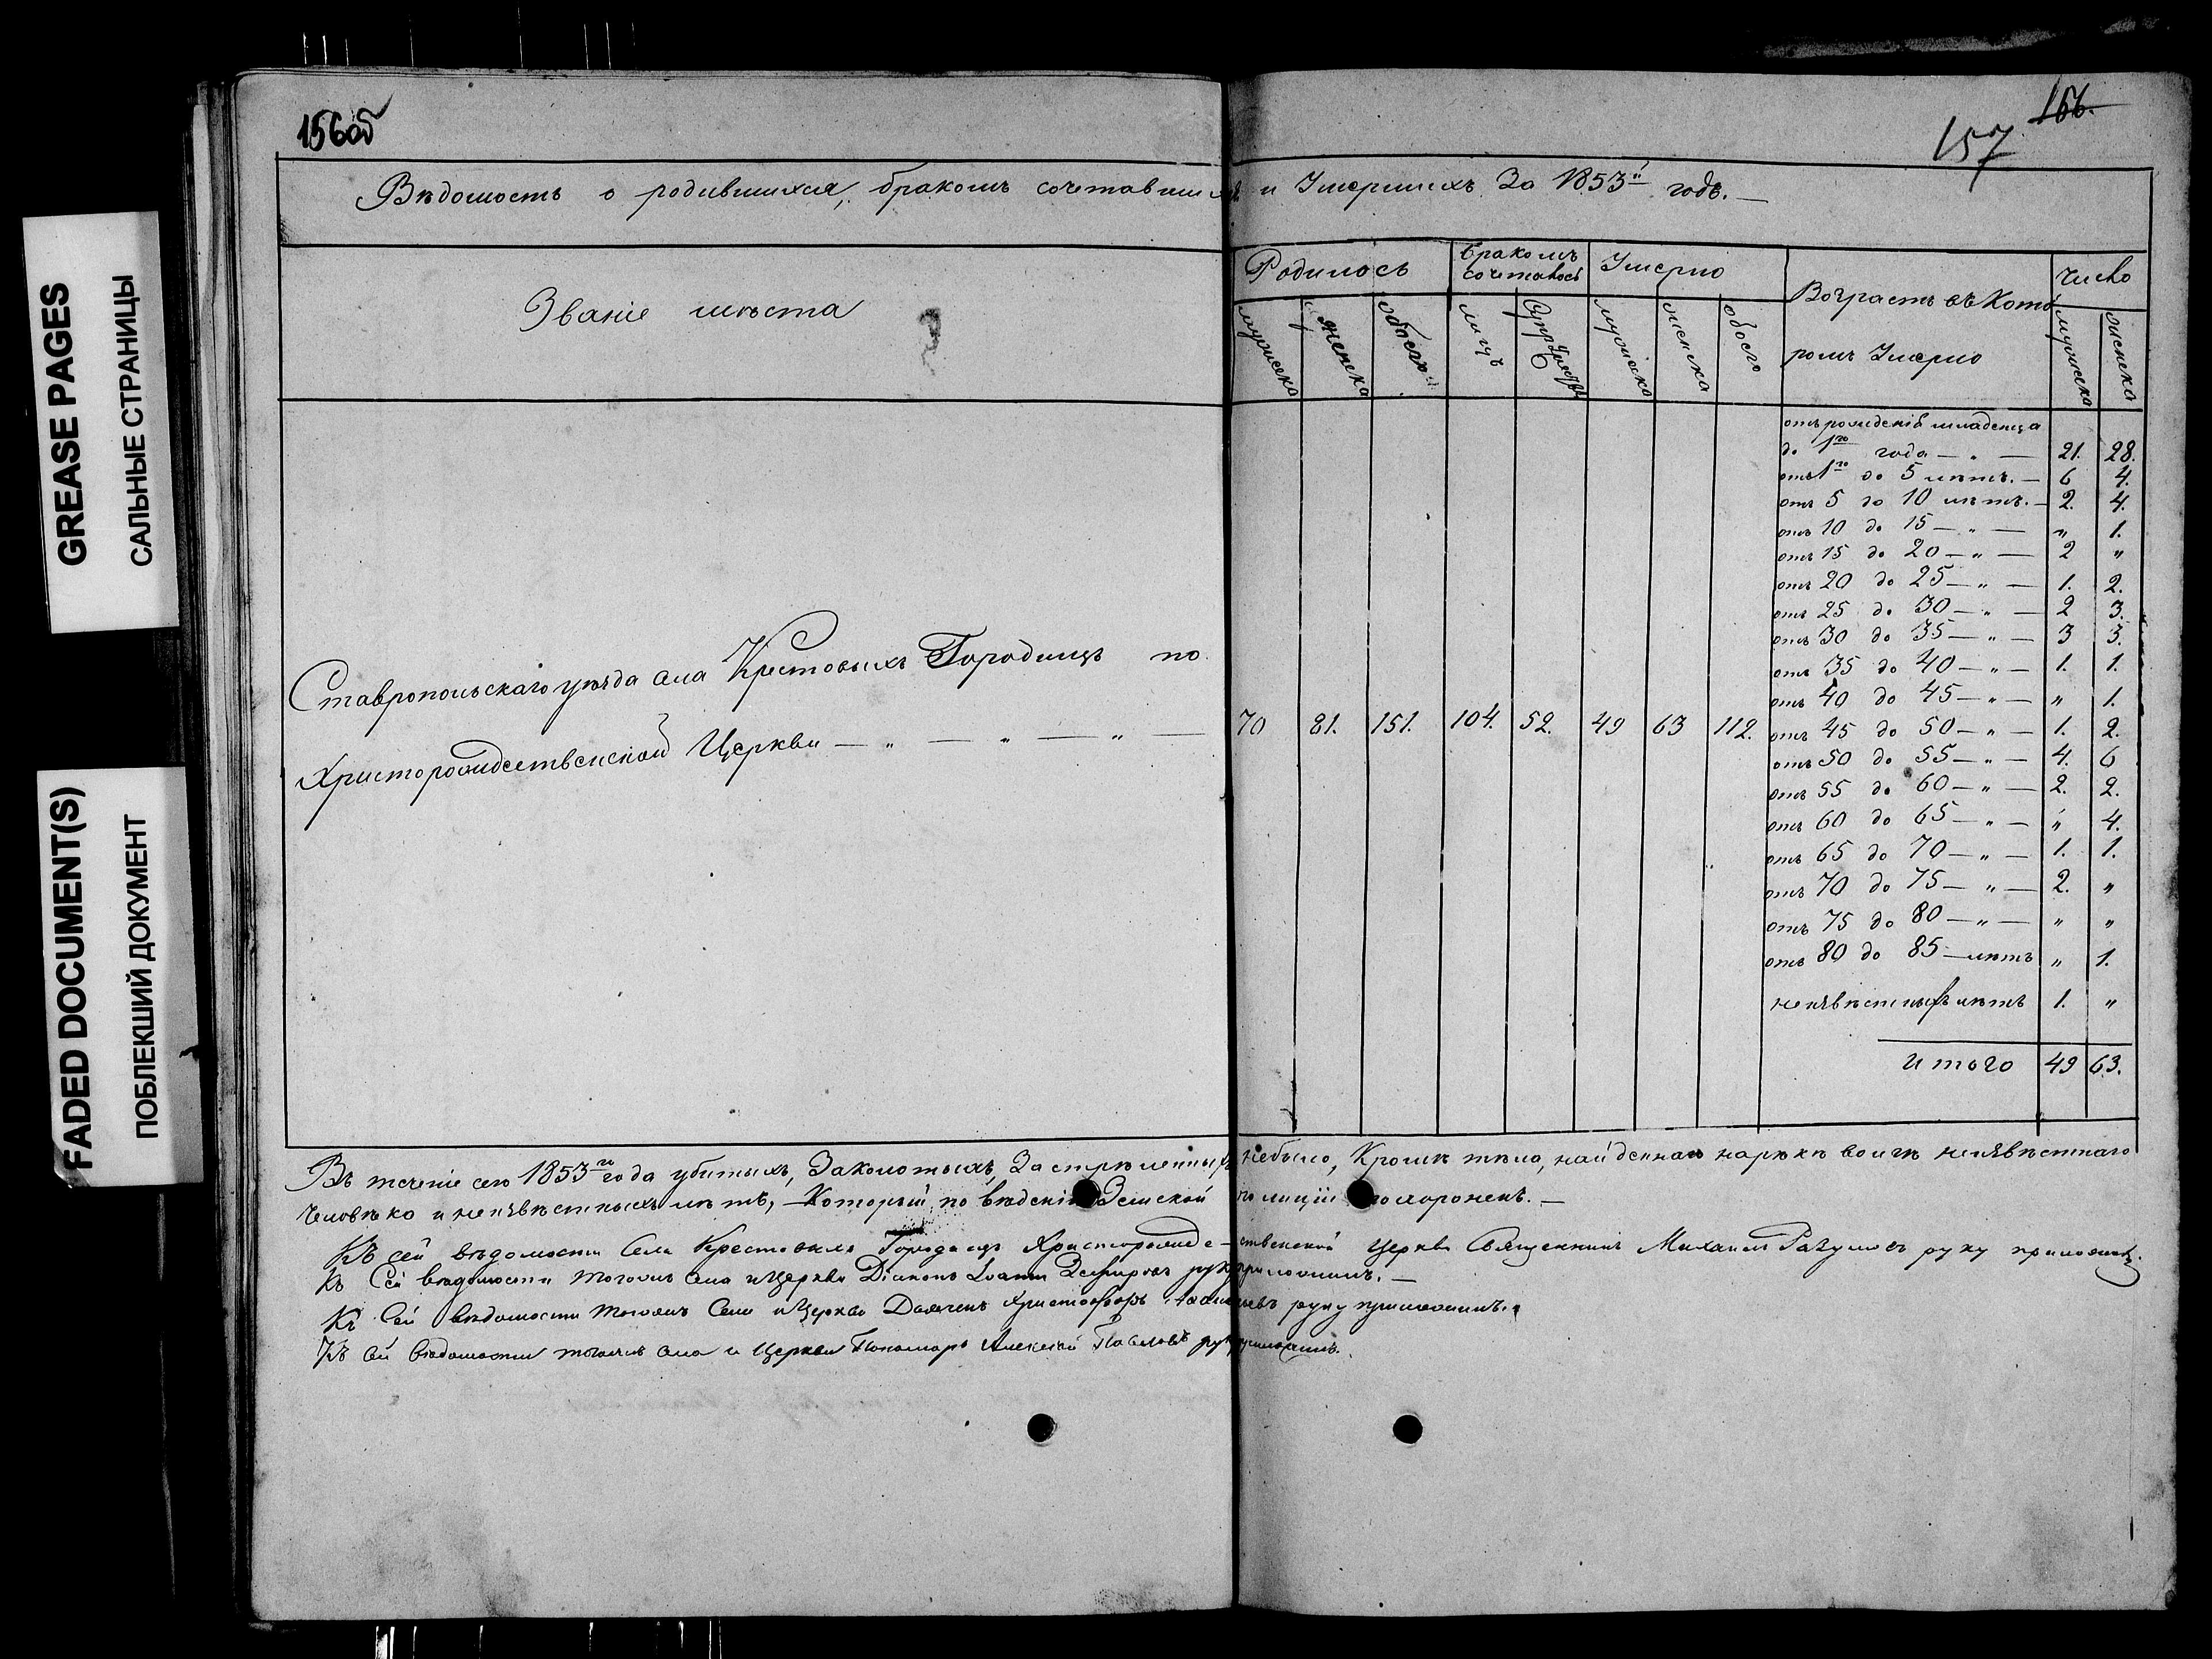 GREASE PAGES
САЛЬНЫЕ СТРАНИЦЫ
FADED DOCUMENT(S)
ПОБЛЕКШИЙ ДОКУМЕНТ
156об
156.
157
Вѣдомость о родившихся, бракомъ сочетавшихся и Умершихъ За 1853й годъ.—
Званіе мѣста
Родилось
бракомъ сочеталось
Умерло
Возрастъ въ Кото
ромъ Умерло
Число
мужеска
женска
обоего
лицъ
Супружествъ
мужеска
женска
обоего
мужеска
женска
Ставропольскаго уѣзда села Крестовыхъ Городищъ по
Христорождественской Церкви — „ — „ — „ —
70 81. 151. 104. 52. 49 63 112.
отъ рожденія младенца
до 1го года — „ — 21. 28.
отъ 1го до 5 лѣтъ. — 6 4.
отъ 5 до 10 лѣтъ. — 2. 4.
отъ 10 до 15 — „ — „ 1.
отъ 15 до 20 — „ — 2 „
отъ 20 до 25 — „ — 1. 2.
отъ 25 до 30 — „ — 2 3.
отъ 30 до 35 — „ — 3 3.
отъ 35 до 40 — „ — 1. 1.
отъ 40 до 45 — „ — „ 1.
отъ 45 до 50 — „ — 1. 2.
отъ 50 до 55 — „ — 4. 6
отъ 55 до 60 — „ — 2. 2.
отъ 60 до 65 — „ — „ 4.
отъ 65 до 70 — „ — 1. 1.
отъ 70 до 75 — „ — 2. „
отъ 75 до 80 — „ — „ „
отъ 80 до 85 — лѣтъ „ 1.
неизвѣстныхъ лѣтъ 1. „
Итого 49 63.
Въ теченіе сего 1853го года убитыхъ, Заколотыхъ, Застрѣленныхъ небыло, Кромѣ тѣла, найденнаго нарѣкѣ волгѣ неизвѣстнаго
Человѣка и неизвѣстныхъ лѣтъ, — Который, по вѣденію Земской полиціи похороненъ. —
Къ сей вѣдомости Села Крестовыхъ Городищъ Христорожде-ственской Церкви Священникъ Михаилъ Разумовъ руку приложилъ.
Къ Сей вѣдомости тогожъ села и Церкви Діаконъ Іоаннъ руку приложилъ. —
Къ Сей вѣдомости тогожъ Села и Церкви Дьячекъ Христофоръ руку приложилъ.
Къ сей вѣдомости тогожъ села и Церкви Пономарь Алексѣй Павловъ руку приложилъ.